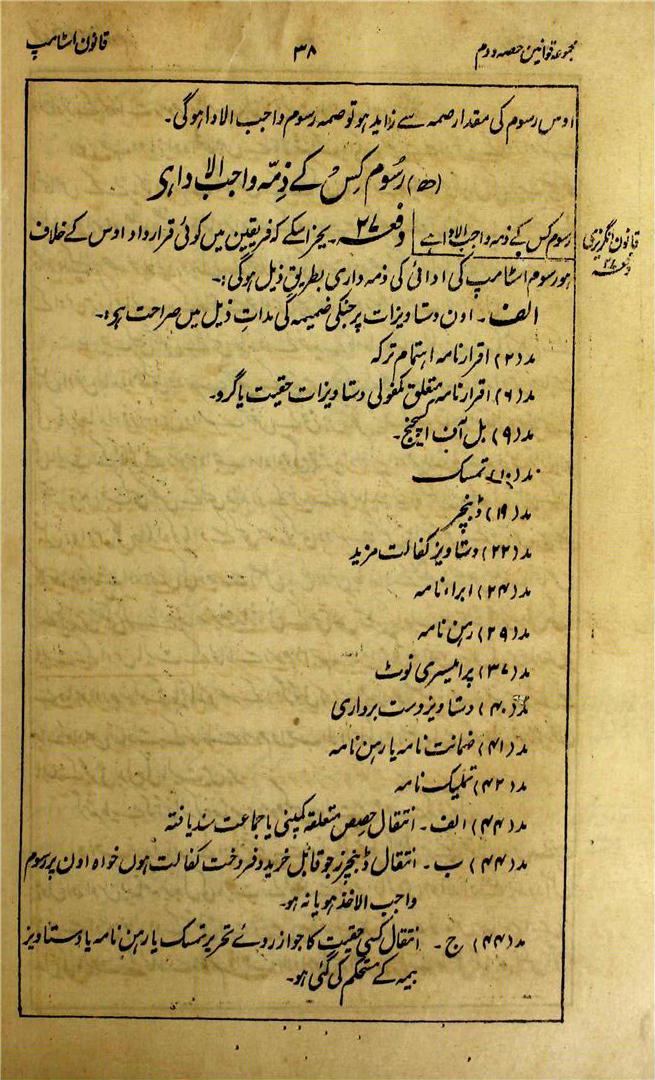 مجموعہ قوانین حصہ دوم
۳۸
قانون اسٹامپ
اوس رسوم کی مقدار صمہ سے زاید ہو تو صمہ رسوم واجب الادا ہوگی۔
(ھ) رسُوم کِس کے ذِمّہ واجبُ الادا ہی
قانون انگریزی
دفعہ ۲۹
رسوم کس کے ذمہ واجب الادا ہے
دفعہ ۲۷۔ بجز اسکے کہ فریقین میں کوئی قرار داد اوس کے خلاف
ہو رسوم اسٹامپ کی ادائی کی ذمہ داری بطریق ذیل ہوگی:۔
الف۔ اون دستاویزات پر جنکی ضمیمہ کی مدات ذیل میں صراحت ہو:۔
مد (۲) اقرار نامہ اہتمام ترکہ
مد (۶) اقرار نامہ متعلق مکفولی دستاویزات حقیت یا گرو۔
مد (۹) بل آف اکسچنج۔
مد (۱۰) تمسک
مد (۱۹) ڈبنچر
مد (۲۲) دستاویز کفالت مزید
مد (۲۴) ابراء نامہ
مد (۲۹) رہن نامہ
مد (۳۷) پرامیسری نوٹ
مد (۴۰) دستاویز دست برداری
مد (۴۱) ضمانت نامہ یا رہن نامہ
مد (۴۲) تملیک نامہ
مد (۴۴) الف۔ انتقال حصص متعلقہ کمپنی یا جماعت سند یافتہ
مد (۴۴) ب۔ انتقال ڈبنچرز جو قابل خرید و فروخت کفالت ہوں خواہ اون پر رسوم
واجب الاخذ ہو یا نہ ہو۔
مد (۴۴) ج۔ انتقال کسی حقیت کا جو از روئے تحریر تمسک یا رہن نامہ یا دستاویز
بیمہ کے مستحکم کی گئی ہو۔